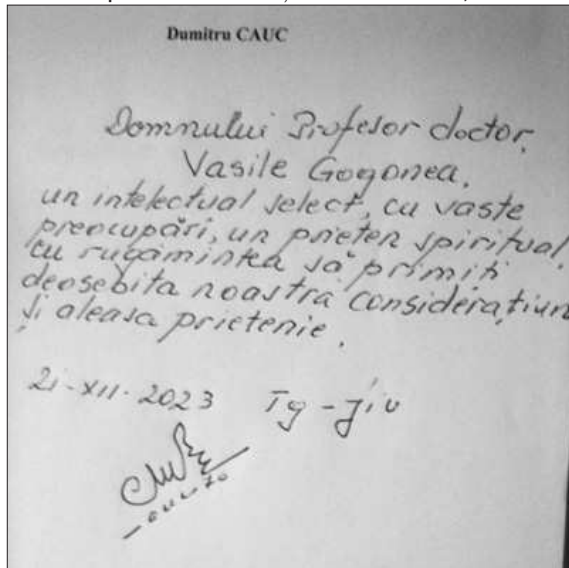 Dumitru CAUC
Domnului Profesor doctor,
Vasile Gogonea,
un intelectual select, cu vaste
preocupări, un prieten spiritual,
cu rugămintea să primiți
deosebita noastră considerațiun
și aleasa prietenie.
21-XII-2023 Tg-Jiu